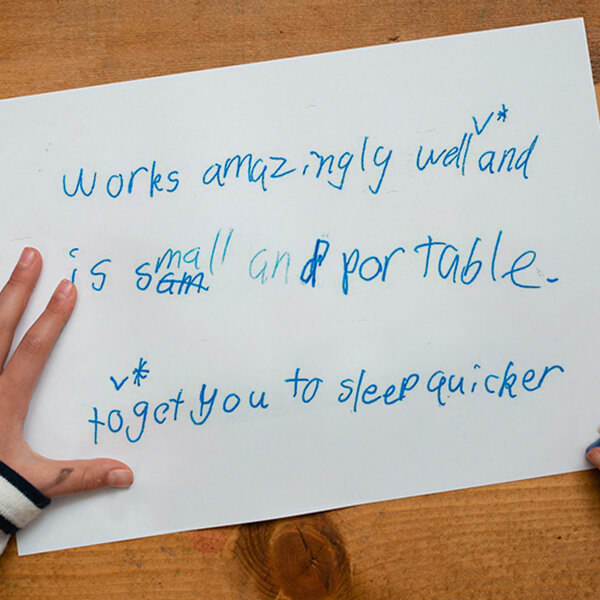 works amazingly well and
is small and portable.
to get you to sleep quicker